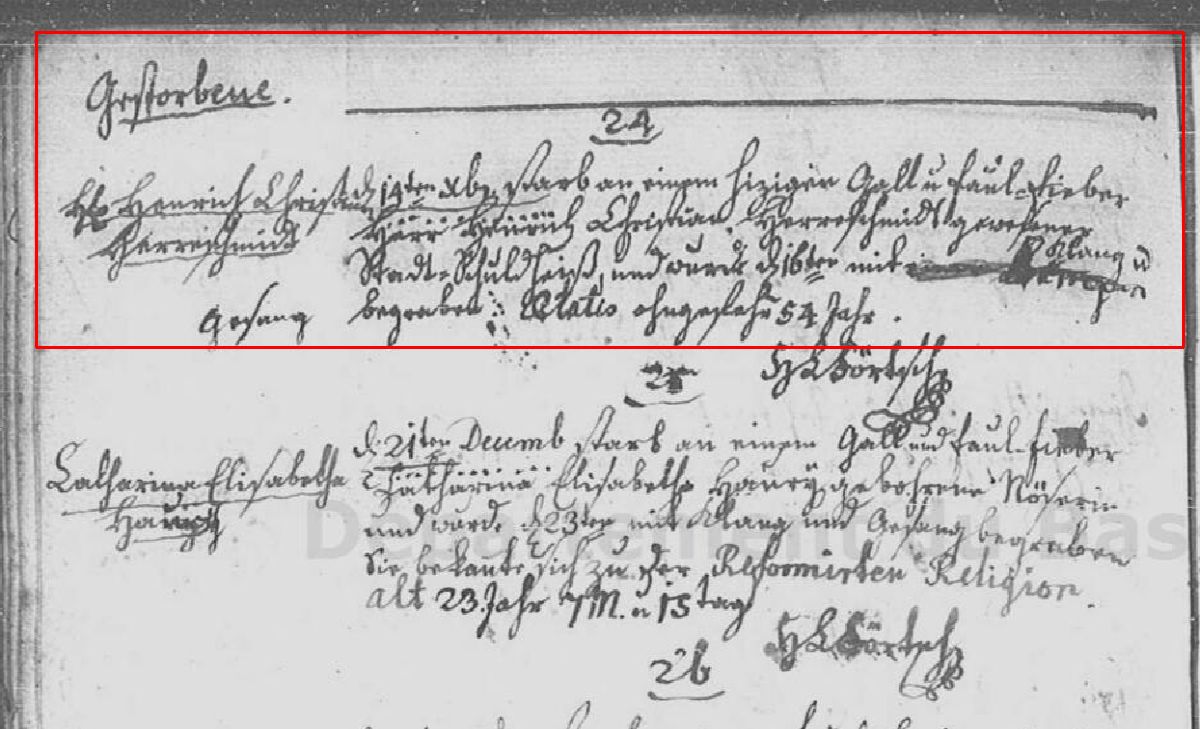 Gestorbene.
24
H. Henrich Christian
Herrschmidt
d. 14ten Xbr. starb an einem hizigen Gall u faul-Fieber
Herr Henrich Christian Herrschmidt gewesener
Stadt-Schuldheiß, und wurde d. 16ten mit Klang u
Gesang begraben. Ætatis ohngefehr 54 Jahr.
25
Catharina Elisabetha
d. 21ten Decemb starb an einem Gall und faul-fieber
Catharina Elisabetha gebohrene Röserin
und wurde d. 23ten mit Klang und Gesang begraben
Sie bekante sich zu der Reformirten Religion
alt 23 Jahr 7 M. u 15 tag
26
Departement du Bas